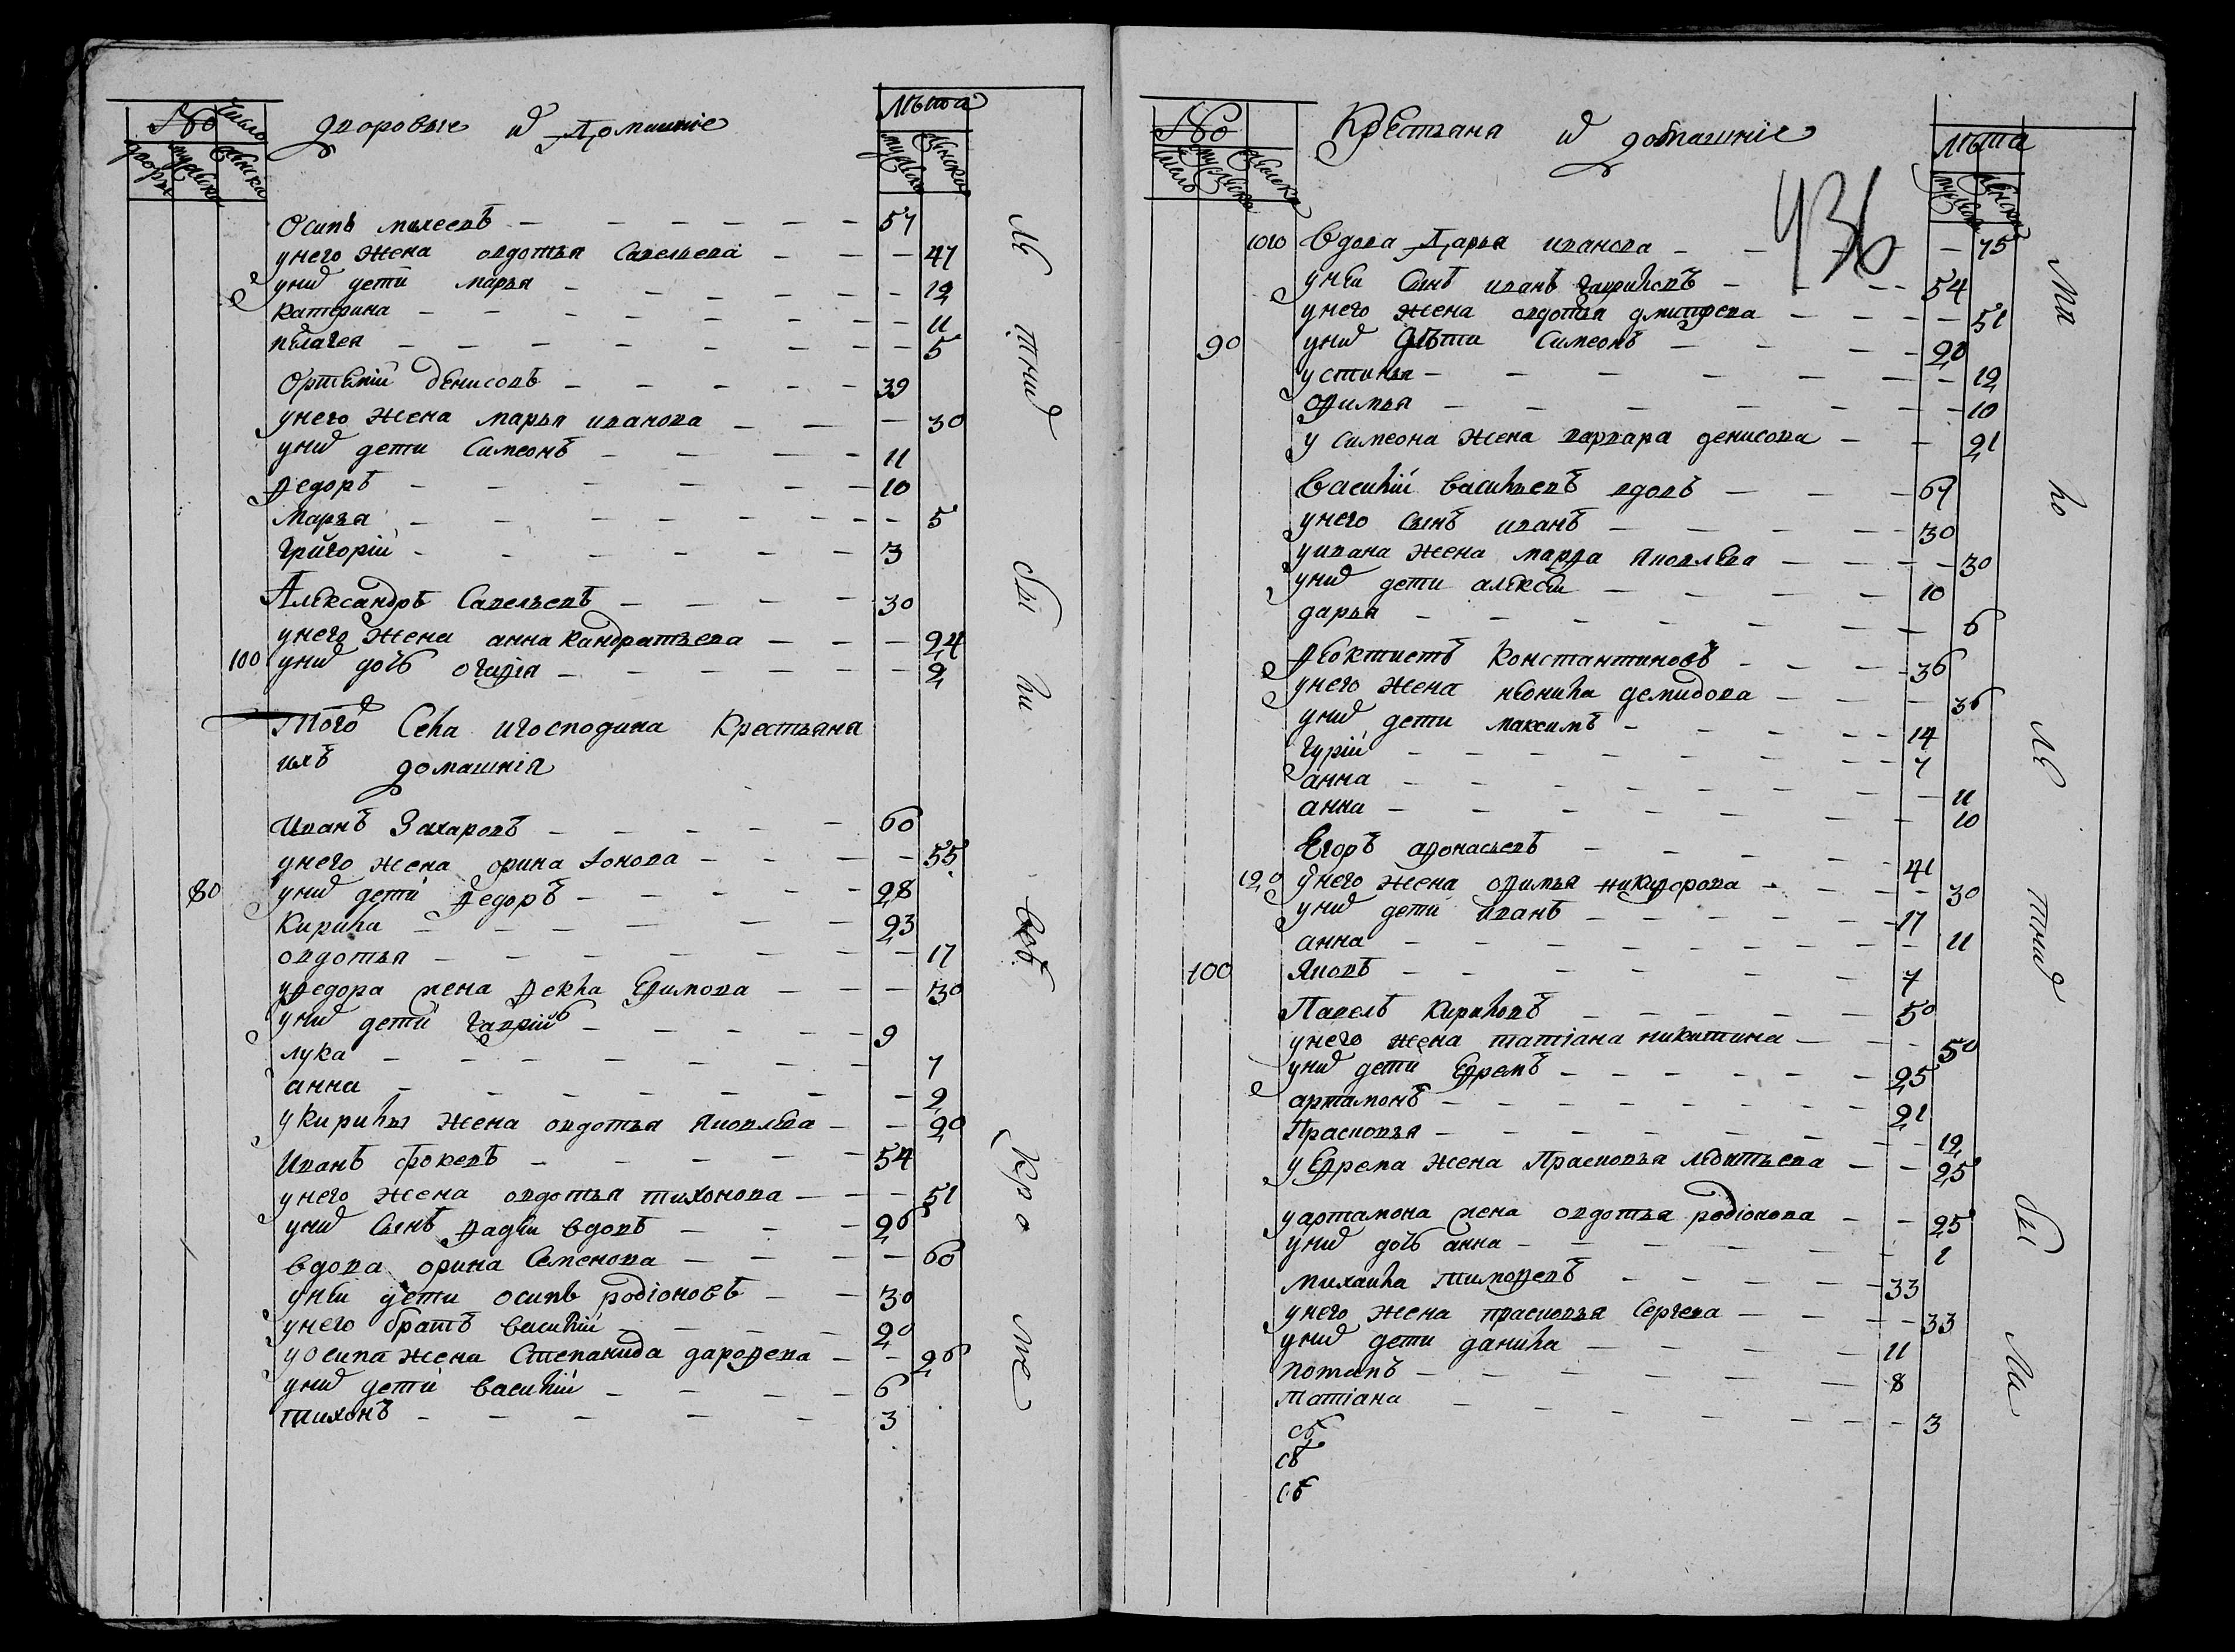 № Число
дворовые и Домашніе
Лѣта
дворы мужеска женска
мужеска женска
Осипъ михеевъ — 57
унего жена овдотья Савельева — 47
унихъ дети марья — 12
катерина — 11
пелагея — 5
Ортемій денисовъ — 39
унего жена марья иванова — 30
унихъ дети Симеонъ — 11
Федоръ — 10
марья — 5
Григорій — 3
Александръ Савельевъ — 30
унего жена анна кандратьева — 24
100 унихъ дочь — 2
Того Села игосподина Крестьяна
ихъ домашнія
Иванъ Захаровъ — 60
унего жена орина — 55
80 унихъ дети Федоръ — 28
Кирила — 23
овдотья — 17
уФедора жена Фекла Ефимова — 30
унихъ дети — 9
лука — 7
анна — 2
укирилы жена овдотья яковлева — 20
Иванъ фокевъ — 54
унего жена овдотья тихонова — 51
унихъ Сынъ Фадѣи вдовъ — 26
вдова орина Семенова — 60
унѣи дети осипъ родіоновъ — 30
унего братъ василій — 20
уосипа жена Степанида дарофева — 26
унихъ дети василій — 6
тихонъ — 3
лѣ
тнихъ
бы
ли
все
кро
ме
№
Крестьяна и домашніе
Лѣта
число мужеска женска
мужеска женска
436
1010 вдова Дарья иванова — 75
унѣи Сынъ иванъ гавриловъ — 54
унего жена овдотья дмитрева — 51
90 унихъ Дѣти Симеонъ — 20
устинья — 12
офимья — 10
у симеона жена варвара денисова — 21
василій васильевъ вдовъ — 67
унего сынъ иванъ — 30
уивана жена марфа яковлева — 30
унихъ дети алексѣи — 10
дарья — 6
Феоктистъ константиновъ — 36
унего жена неонила демидова — 36
унихъ дети максимъ — 14
гурій — 7
анна — 11
анна — 10
Егоръ афонасьевъ — 41
120 унего жена офимья никифорова — 30
унихъ дети иванъ — 17
анна — 11
100 Яковъ — 7
Павелъ кириловъ — 50
унего жена татіана никитина — 50
унихъ дети Ефремъ — 25
артамонъ — 21
Прасковья — 12
уЕфрема жена Прасковья леонтьева — 25
уартамона жена овдотья родіонова — 25
унихъ дочь анна — 1
михаила тимофевъ — 33
унего жена прасковья Сергеева — 33
унихъ дети данила — 11
потапъ — 8
татіана — 3
сб
сб
сб
ма
ло
лѣ
тнихъ
бы
ли